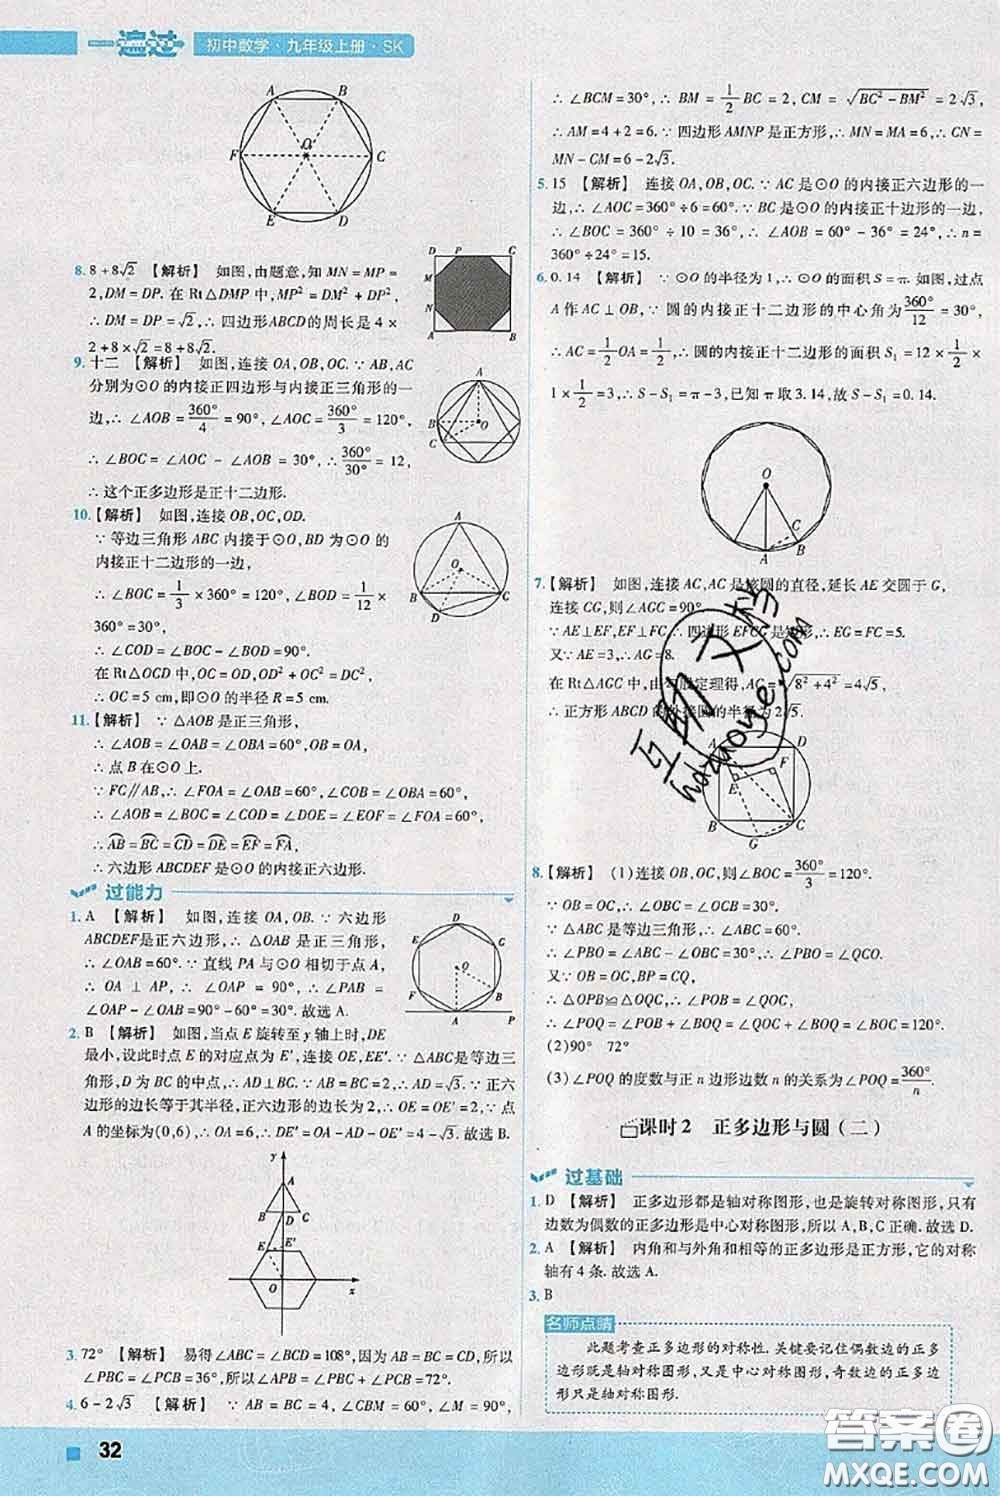 一遍过 初中数学·九年级上册·SK
A B
F O C
E D
8. 8+8√2 【解析】 如图,由题意,知 MN=MP=
2,DM=DP. 在 Rt△DMP 中,MP²=DM²+DP²,
∴ DM=DP=√2,∴ 四边形ABCD的周长是 4×
2+8×√2=8+8√2.
D P C
M
N
A B
9. 十二 【解析】 如图,连接 OA,OB,OC. ∵ AB,AC
分别为⊙O 的内接正四边形与内接正三角形的一
边,∴ ∠AOB=360°/4=90°,∠AOC=360°/3=120°,
∴ ∠BOC=∠AOC-∠AOB=30°,∴ 360°/30°=12,
∴ 这个正多边形是正十二边形.
A
B O
C
10. 【解析】 如图,连接 OB,OC,OD.
∵ 等边三角形 ABC 内接于⊙O,BD 为⊙O 的
内接正十二边形的一边,
∴ ∠BOC=1/3×360°=120°,∠BOD=1/12×
360°=30°,
∴ ∠COD=∠BOC-∠BOD=90°.
在 Rt△OCD 中,OC=OD,CD=5√2 cm,
∴ OC=5 cm,即⊙O 的半径 R=5 cm.
A
O
B C
D
11. 【解析】 ∵ △AOB 是正三角形,
∴ ∠AOB=∠OAB=∠OBA=60°,OB=OA,
∴ 点 B 在⊙O 上.
∵ FC∥AB,∴ ∠FOA=∠OAB=60°,
∴ ∠AOB=∠BOC=∠COD=∠DOE=∠EOF=
∠FOA=60°,
∴ AB=BC=CD=DE=EF=FA,
∴ 六边形 ABCDEF 是⊙O 的内接正六边形.
过能力
1. A 【解析】 如图,连接 OA,OB. ∵ 六边形
ABCDEF是正六边形,∴ △OAB 是正三角形,
∴ ∠OAB=60°. ∵ 直线 PA 与⊙O 相切于点 A,
∴ OA⊥AP,∴ ∠OAP=90°,∴ ∠PAB=
∠OAP-∠OAB=90°-60°=30°. 故选 A.
D
E C
O
F B
A P
2. B 【解析】 如图,当点 E 旋转至 y 轴上时,DE
最小,设此时点 E 的对应点为 E′,连接 OE,EE′. ∵ △ABC是等边三
角形,D 为 BC 的中点,∴ AD⊥BC. ∵ AB=BC=2,∴ AD=√3. ∵ 正六
边形的边长等于其半径,正六边形的边长为2,∴ OE=OE′=2. ∵ 点
A 的坐标为(0,6),∴ OA=6,∴ DE′=OA-AD-OE′=4-√3. 故选 B.
y
A
B D C
E E′
O x
3. 72° 【解析】 易得∠ABC=∠BCD=108°,因为 AB=BC=CD,所以
∠PBC=∠PCB=36°,所以∠APB=∠PBC+∠PCB=72°.
4. 6-2√3 【解析】 ∵ AB=BC=4,∠CBM=60°,∠M=90°,
∴ ∠BCM=30°,∴ BM=1/2 BC=2,CM=√(BC²-BM²)=2√3,
∴ AM=4+2=6. ∵ 四边形 AMNP 是正方形,∴ MN=MA=6,∴ CN=
MN-CM=6-2√3.
5. 15 【解析】 连接 OA,OB,OC. ∵ AC 是⊙O 的内接正六边形的一
边,∴ ∠AOC=360°÷6=60°. ∵ BC 是⊙O 的内接正十边形的一边,
∴ ∠BOC=360°÷10=36°,∴ ∠AOB=60°-36°=24°,∴ n=
360°÷24°=15.
6. 0.14 【解析】 ∵ ⊙O 的半径为 1,∴ ⊙O 的面积 S=π. 如图,过点
A 作 AC⊥OB,∵ 圆的内接正十二边形的中心角为360°/12=30°,
∴ AC=1/2 OA=1/2,∴ 圆的内接正十二边形的面积 S₁=12×1/2×
1×1/2=3,∴ S-S₁=π-3,已知 π 取 3.14,故 S-S₁=0.14.
O
C
A B
7. 【解析】 如图,连接 AC,AC 是该圆的直径,延长 AE 交圆于 G,
连接 CG,则∠AGC=90°.
∵ AE⊥EF,EF⊥FC,∴ 四边形 EFCG 是矩形,∴ EG=FC=5.
又∵ AE=3,∴ AG=8.
在 Rt△AGC 中,由勾股定理得,AC=√(8²+4²)=4√5,
∴ 正方形 ABCD 的外接圆的半径为 2√5.
A D
F
E
B C
G
互助文档
hdzuoye.com
8. 【解析】 (1)连接 OB,OC,则∠BOC=360°/3=120°.
∵ OB=OC,∴ ∠OBC=∠OCB=30°.
∵ △ABC 是等边三角形,∴ ∠ABC=60°.
∴ ∠PBO=∠ABC-∠OBC=30°,∴ ∠PBO=∠QCO.
又∵ OB=OC,BP=CQ,
∴ △OPB≌△OQC,∴ ∠POB=∠QOC,
∴ ∠POQ=∠POB+∠BOQ=∠QOC+∠BOQ=∠BOC=120°.
(2)90° 72°
(3)∠POQ 的度数与正 n 边形边数 n 的关系为∠POQ=360°/n.
课时2 正多边形与圆(二)
过基础
1. D 【解析】 正多边形都是轴对称图形,也是旋转对称图形,只有
边数为偶数的正多边形是中心对称图形,所以 A,B,C 正确. 故选 D.
2. A 【解析】 内角和与外角和相等的正多边形是正方形,它的对称
轴有 4 条. 故选 A.
3. B
名师点睛
此题考查正多边形的对称性. 关键要记住偶数边的正多
边形既是轴对称图形,又是中心对称图形,奇数边的正多边
形只是轴对称图形.
32
答案圈
MXQE.COM